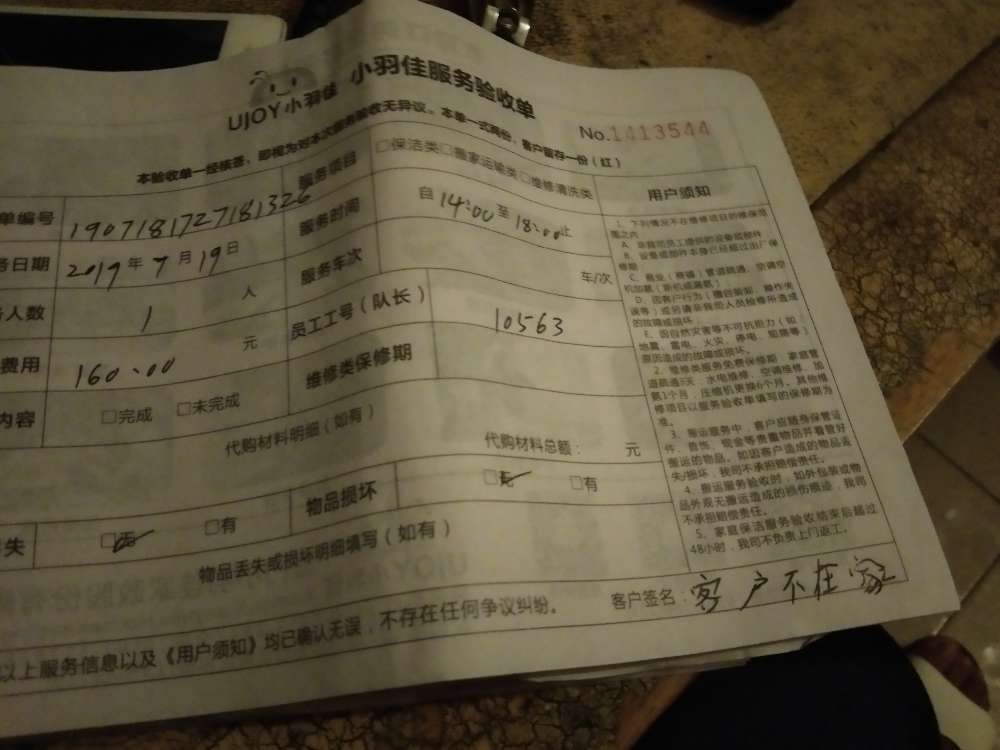 UJOY小羽佳 小羽佳服务验收单
No.1413544
本验收单一经核签，即视为对本次服务验收无异议。本单一式两份，客户留存一份（红）
单编号 1907181727181326 服务项目 □保洁类□搬家运输类□维修清洗类
务日期 2019年7月19日 服务时间 自14:00至18:00止
人数 1 人 服务车次 车/次
费用 160.00 元 员工工号（队长） 10563
内容 □完成 □未完成 维修类保修期
代购材料明细（如有）
代购材料总额： 元
失 □无 □有 物品损坏 □无 □有
物品丢失或损坏明细填写（如有）
以上服务信息以及《用户须知》均已确认无误，不存在任何争议纠纷。
客户签名：客户不在家
用户须知
1、下列情况不在维修项目的维保范
围之内
A、非我司员工提供的设备或部件
B、设备或部件本身已经超过出厂保
修期
C、商业（商铺）管道疏通、空调空
机加氨（新机或漏氨）
D、因客户行为（擅自装卸、操作失
误等）或另请非我司人员检修所造成
的故障或损坏
E、因自然灾害等不可抗能力（如：
地震、雷电、火灾、停电、短路等）
原因造成的故障或损坏。
2、维修类服务免费保修期：家庭管
道疏通8天，水电维修、空调维修、加
氨1个月，压缩机更换6个月。其他维
修项目以服务验收单填写的保修期为
准。
3、搬运服务中，客户应随身保管证
件、首饰、现金等贵重物品并看管好
搬运的物品。如因客户造成的物品丢
失/损坏，我司不承担赔偿责任。
4、搬运服务验收时，如外包装或物
品外观无搬运造成的损伤痕迹，我司
不承担赔偿责任。
5、家庭保洁服务验收结束后超过
48小时，我司不负责上门返工。